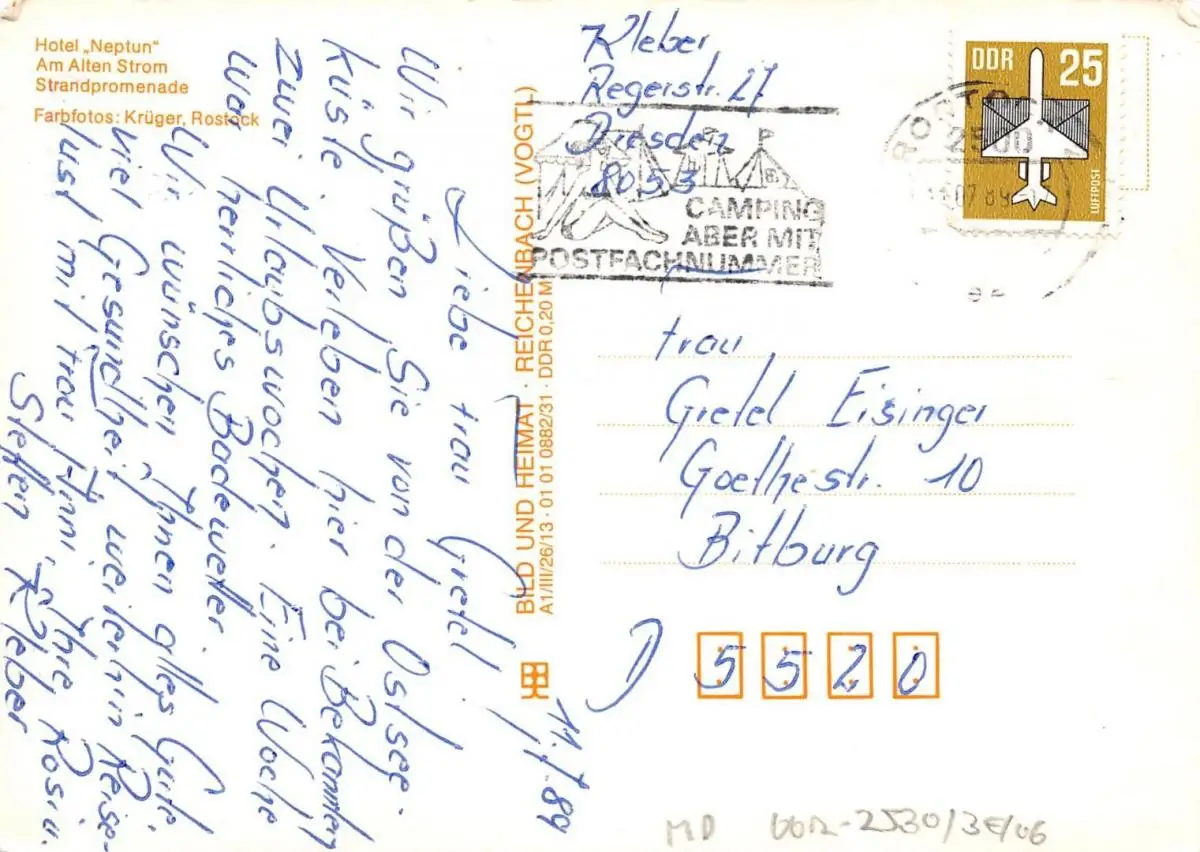 Hotel „Neptun"
Am Alten Strom
Strandpromenade
Farbfotos: Krüger, Rostock
Liebe Frau Gretel!
11.7.89
Wir grüßen Sie von der Ostsee-
küste. Verleben hier bei Bekannten
zwei Urlaubswochen. Eine Woche
war herrliches Badewetter.
Wir wünschen Ihnen alles Gute,
viel Gesundheit weiterhin Reise-
lust mit Frau Anni, Ihre Rosi u.
Steffen Kleber
BILD UND HEIMAT · REICHENBACH (VOGTL)
A1/III/26/13 · 01 01 0882/31 · DDR 0,20 M
Kleber
Regerstr. 27
Dresden
8053
CAMPING
ABER MIT
POSTFACHNUMMER
ROSTOCK
2500
07.89
DDR 25
LUFTPOST
Frau
Gretel Eisinger
Goethestr. 10
Bitburg
D 5520
MD DDR-2530/3E/06